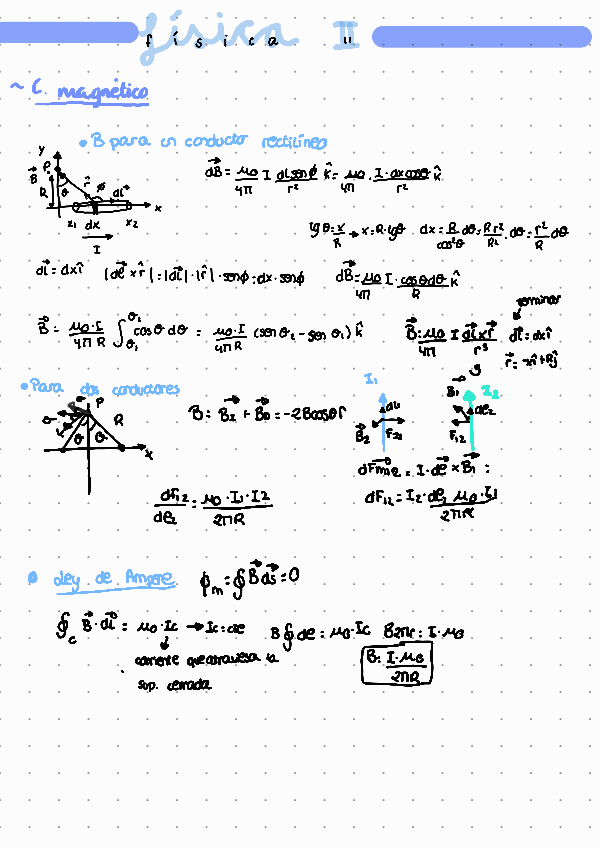 física II
física II
~ C. magnético
• B para un conductor rectilíneo
y
P
B⃗ θ r̂ ϕ dl⃗
R
x
x₁ dx x₂
I
dB⃗ = μ₀/4π I dl senϕ/r² k̂ = μ₀/4π · I·dx cosθ/r² k̂
tgθ = x/R → x = R·tgθ dx = R/cos²θ dθ = R r²/R² · dθ = r²/R dθ
dl⃗ = dx î |dl⃗ × r̂| = |dl⃗|·|r̂|·senϕ = dx·senϕ dB⃗ = μ₀/4π I · cosθdθ/R k̂
B⃗ = μ₀·I/4πR ∫θ₁^θ₂ cosθ dθ = μ₀·I/4πR (senθ₂ - senθ₁) k̂
terminar
B⃗ = μ₀/4π I dl⃗ x r⃗/r³ dl⃗ = dx î
r⃗ = -xî + Rĵ
• Para dos conductores
P
R
θ θ
x
B = B⃗I + B⃗D = -2Bcosθ î
I₁
dl₁
B⃗₂ F₂₁
B⃗₁ I₂
dl₂
F₁₂
dF⃗m12 = I·dl⃗ × B⃗₁ :
dF₁₂/dl₂ = μ₀·I₁·I₂/2πR
dF₁₂ = I₂·dl₂ μ₀·I₁/2πR
• Ley de Ampere ϕm = ∮ B⃗ ds⃗ = 0
∮c B⃗·dl⃗ = μ₀·Ic → Ic = cte B∮dl = μ₀·Ic B2πr = I·μ₀
corriente que atraviesa la
sup. cerrada
B = I·μ₀/2πR